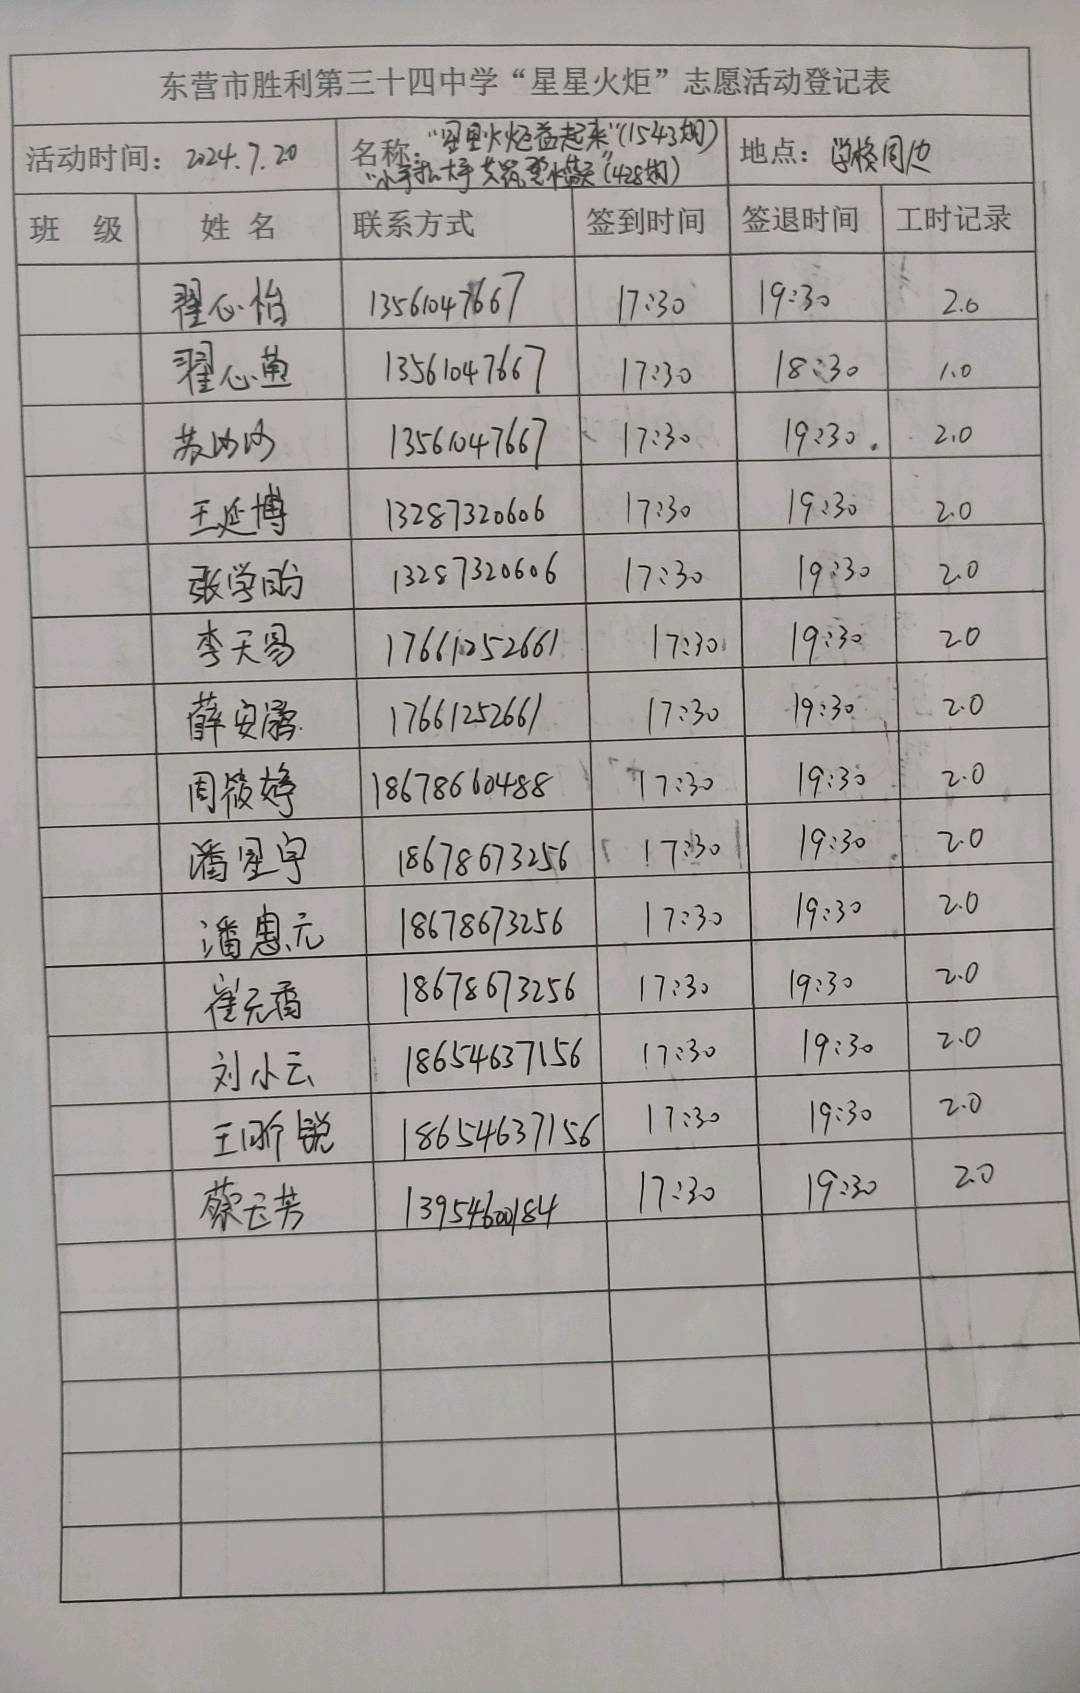 东营市胜利第三十四中学“星星火炬”志愿活动登记表
活动时间：2024.7.20 名称：“星星火炬益起来”(1543期) “小手拉大手 共筑爱心蓝天”(428期) 地点：学校周边
班 级 姓 名 联系方式 签到时间 签退时间 工时记录
翟心怡 13561047667 17:30 19:30 2.0
翟心 13561047667 17:30 18:30 1.0
苏 13561047667 17:30 19:30 2.0
王延博 13287320606 17:30 19:30 2.0
张学昀 13287320606 17:30 19:30 2.0
李天易 17661252661 17:30 19:30 2.0
薛安 17661252661 17:30 19:30 2.0
周筱婷 18678660488 17:30 19:30 2.0
潘星宇 18678673256 17:30 19:30 2.0
潘惠元 18678673256 17:30 19:30 2.0
崔元香 18678673256 17:30 19:30 2.0
刘小云 18654637156 17:30 19:30 2.0
王昕锐 18654637156 17:30 19:30 2.0
蔡云芳 13954600184 17:30 19:30 2.0